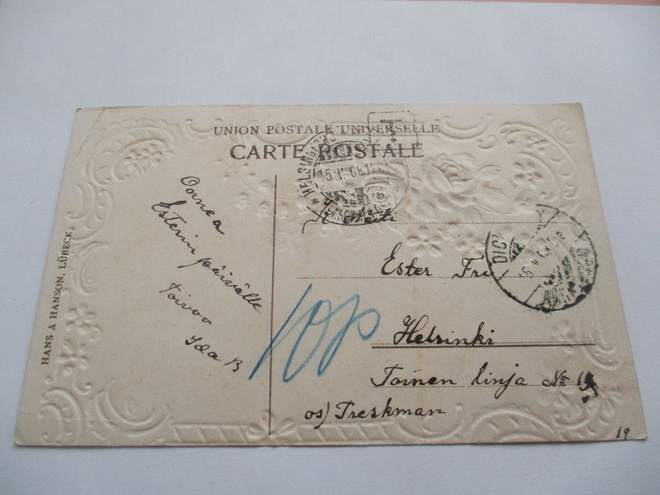 UNION POSTALE UNIVERSELLE
CARTE POSTALE
T
HANS A HANSON, LÜBECK
Onnea
Esterin päivälle
toivoo
Ida B
10p
Ester
Helsinki
Toinen linja No
os) Freskman
19